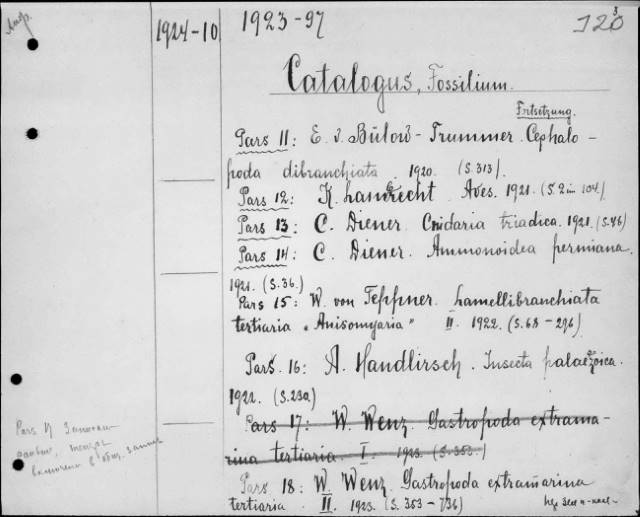 1924-10
1923-97
Catalogus, Fossilium.
Fortsetzung.
Pars 11: E. v. Bülow-Trummer. Cephalo-
poda dibranchiata. 1920. (S.313).
Pars 12: K. Lambrecht. Aves. 1921. (S. 104)
Pars 13: C. Diener. Cnidaria triadica. 1921. (S.46)
Pars 14: C. Diener. Ammonoidea permiana.
1921. (S.36.)
Pars 15: W. von Teppner. Lamellibranchiata
tertiaria „Anisomyaria" II. 1922. (S.68-296)
Pars. 16: A. Handlirsch. Insecta palaeozoica.
1922. (S.230)
Pars 17: W. Wenz. Gastropoda extrama-
rina tertiaria. I. 1923. (S.352.)
Pars 18: W. Wenz. Gastropoda extramarina
tertiaria. II. 1923. (S. 353-736)
Pars